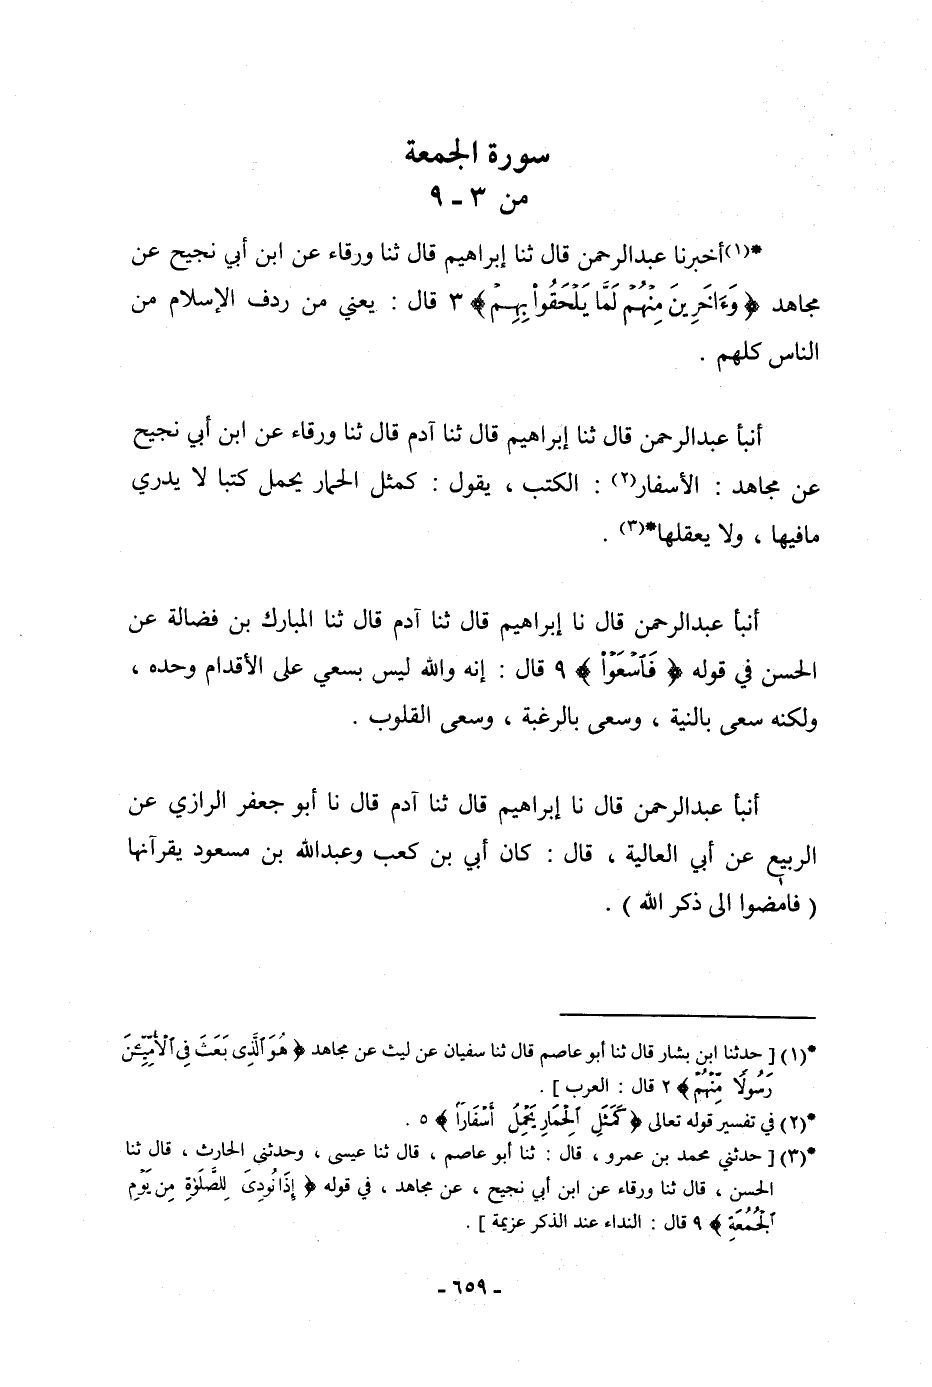 سورة الجمعة
من ٣ - ٩
*(١)أخبرنا عبدالرحمن قال ثنا إبراهيم قال ثنا ورقاء عن ابن أبي نجيح عن
مجاهد ﴿ وَءَاخَرِينَ مِنْهُمْ لَمَّا يَلْحَقُواْ بِهِمْ ﴾ ٣ قال : يعني من ردف الإسلام من
الناس كلهم .
أنبأ عبدالرحمن قال ثنا إبراهيم قال ثنا آدم قال ثنا ورقاء عن ابن أبي نجيح
عن مجاهد : الأسفار(٢) : الكتب ، يقول : كمثل الحمار يحمل كتبا لا يدري
مافيها ، ولا يعقلها*(٣) .
أنبأ عبدالرحمن قال نا إبراهيم قال ثنا آدم قال ثنا المبارك بن فضالة عن
الحسن في قوله ﴿ فَٱسْعَوْاْ ﴾ ٩ قال : إنه والله ليس بسعي على الأقدام وحده ،
ولكنه سعى بالنية ، وسعى بالرغبة ، وسعى القلوب .
أنبأ عبدالرحمن قال نا إبراهيم قال ثنا آدم قال نا أبو جعفر الرازي عن
الربيع عن أبي العالية ، قال : كان أبي بن كعب وعبدالله بن مسعود يقرآنها
( فامضوا الى ذكر الله ) .
*(١) [ حدثنا ابن بشار قال ثنا أبو عاصم قال ثنا سفيان عن ليث عن مجاهد ﴿ هُوَ ٱلَّذِى بَعَثَ فِى ٱلْأُمِّيِّـۧنَ
رَسُولًا مِّنْهُمْ ﴾ ٢ قال : العرب ] .
*(٢) في تفسير قوله تعالى ﴿ كَمَثَلِ ٱلْحِمَارِ يَحْمِلُ أَسْفَارًا ﴾ ٥ .
*(٣) [ حدثني محمد بن عمرو ، قال : ثنا أبو عاصم ، قال ثنا عيسى ، وحدثني الحارث ، قال ثنا
الحسن ، قال ثنا ورقاء عن ابن أبي نجيح ، عن مجاهد ، في قوله ﴿ إِذَا نُودِىَ لِلصَّلَوٰةِ مِن يَوْمِ
ٱلْجُمُعَةِ ﴾ ٩ قال : النداء عند الذكر عزيمة ] .
- ٦٥٩ -